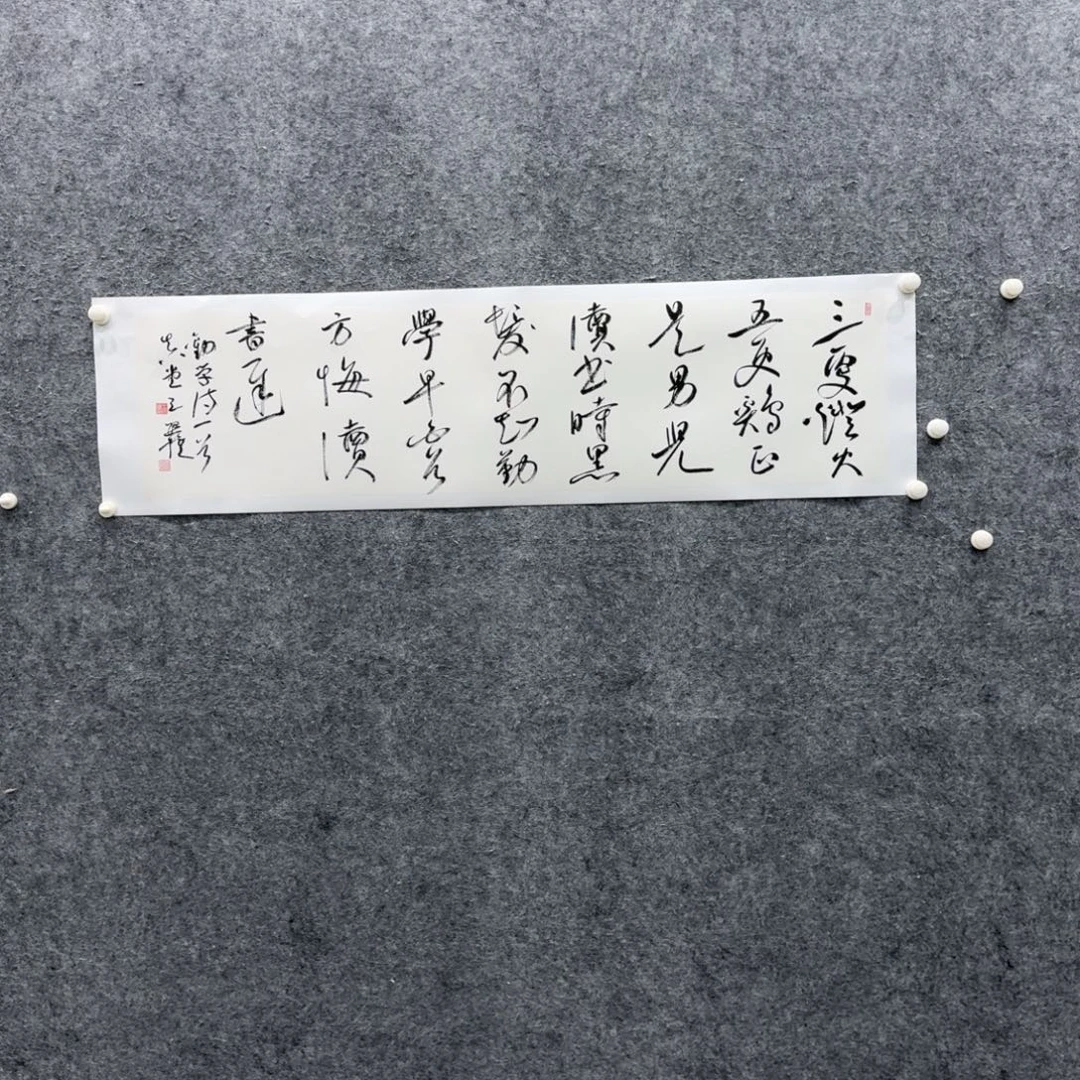 三更燈火
五更鷄正
是男兒
讀书時黑
髮不知勤
學早白首
方悔讀
書遲
勸学诗一首